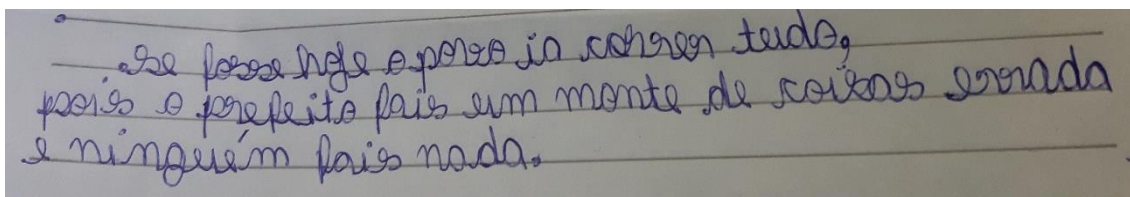 Se fosse hoje o povo ia correr tudo,
pois o prefeito fais um monte de coisas errada
e ninguém fais nada.